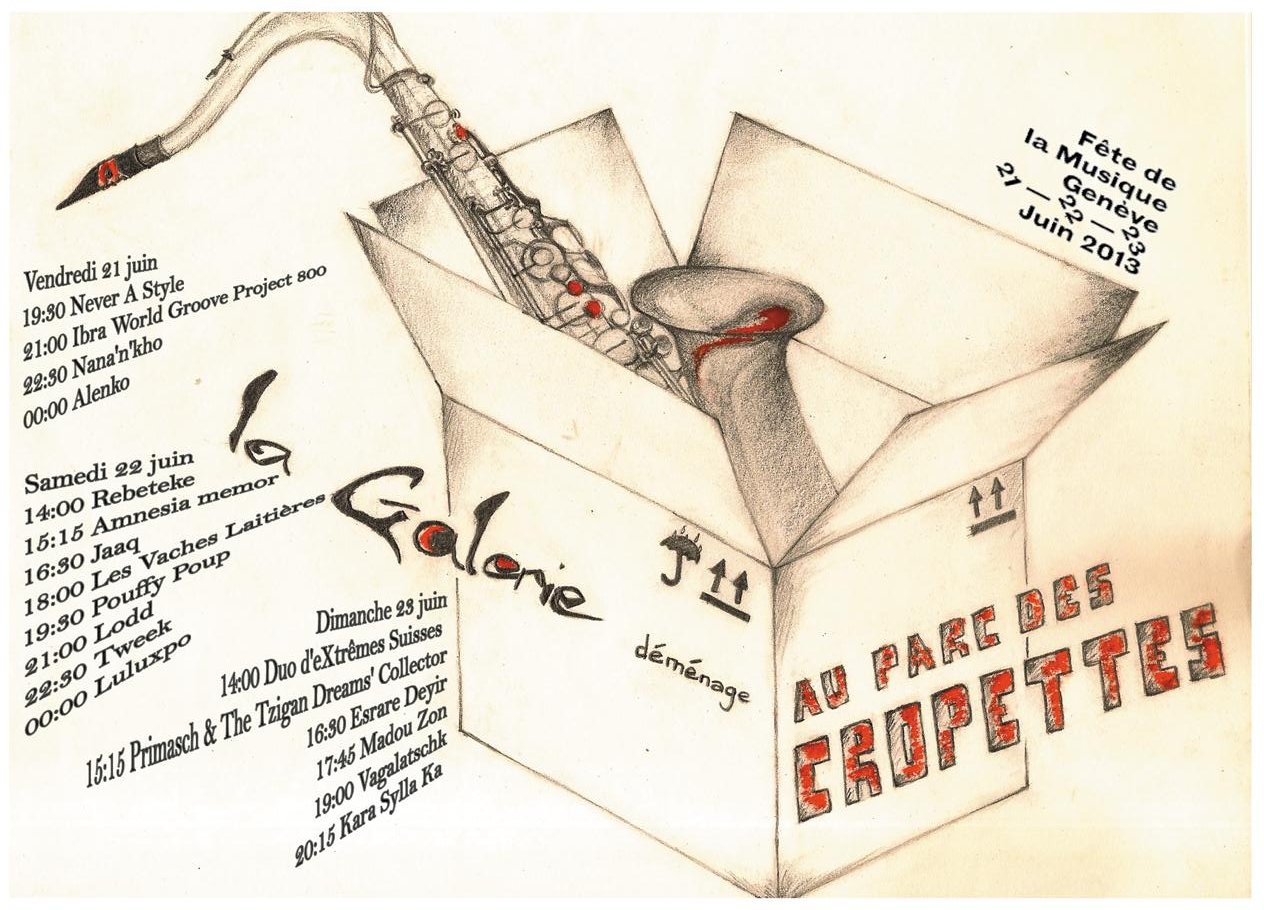 Fête de
la Musique
Genève
21 — 22 — 23
Juin 2013
Vendredi 21 juin
19:30 Never A Style
21:00 Ibra World Groove Project 800
22:30 Nana'n'kho
00:00 Alenko
Samedi 22 juin
14:00 Rebeteke
15:15 Amnesia memor
16:30 Jaaq
18:00 Les Vaches Laitières
19:30 Pouffy Poup
21:00 Lodd
22:30 Tweek
00:00 Luluxpo
la
Galerie
déménage
AU PARC DES
CROPETTES
Dimanche 23 juin
14:00 Duo d'eXtrêmes Suisses
15:15 Primasch & The Tzigan Dreams' Collector
16:30 Esrare Deyir
17:45 Madou Zon
19:00 Vagalatschk
20:15 Kara Sylla Ka